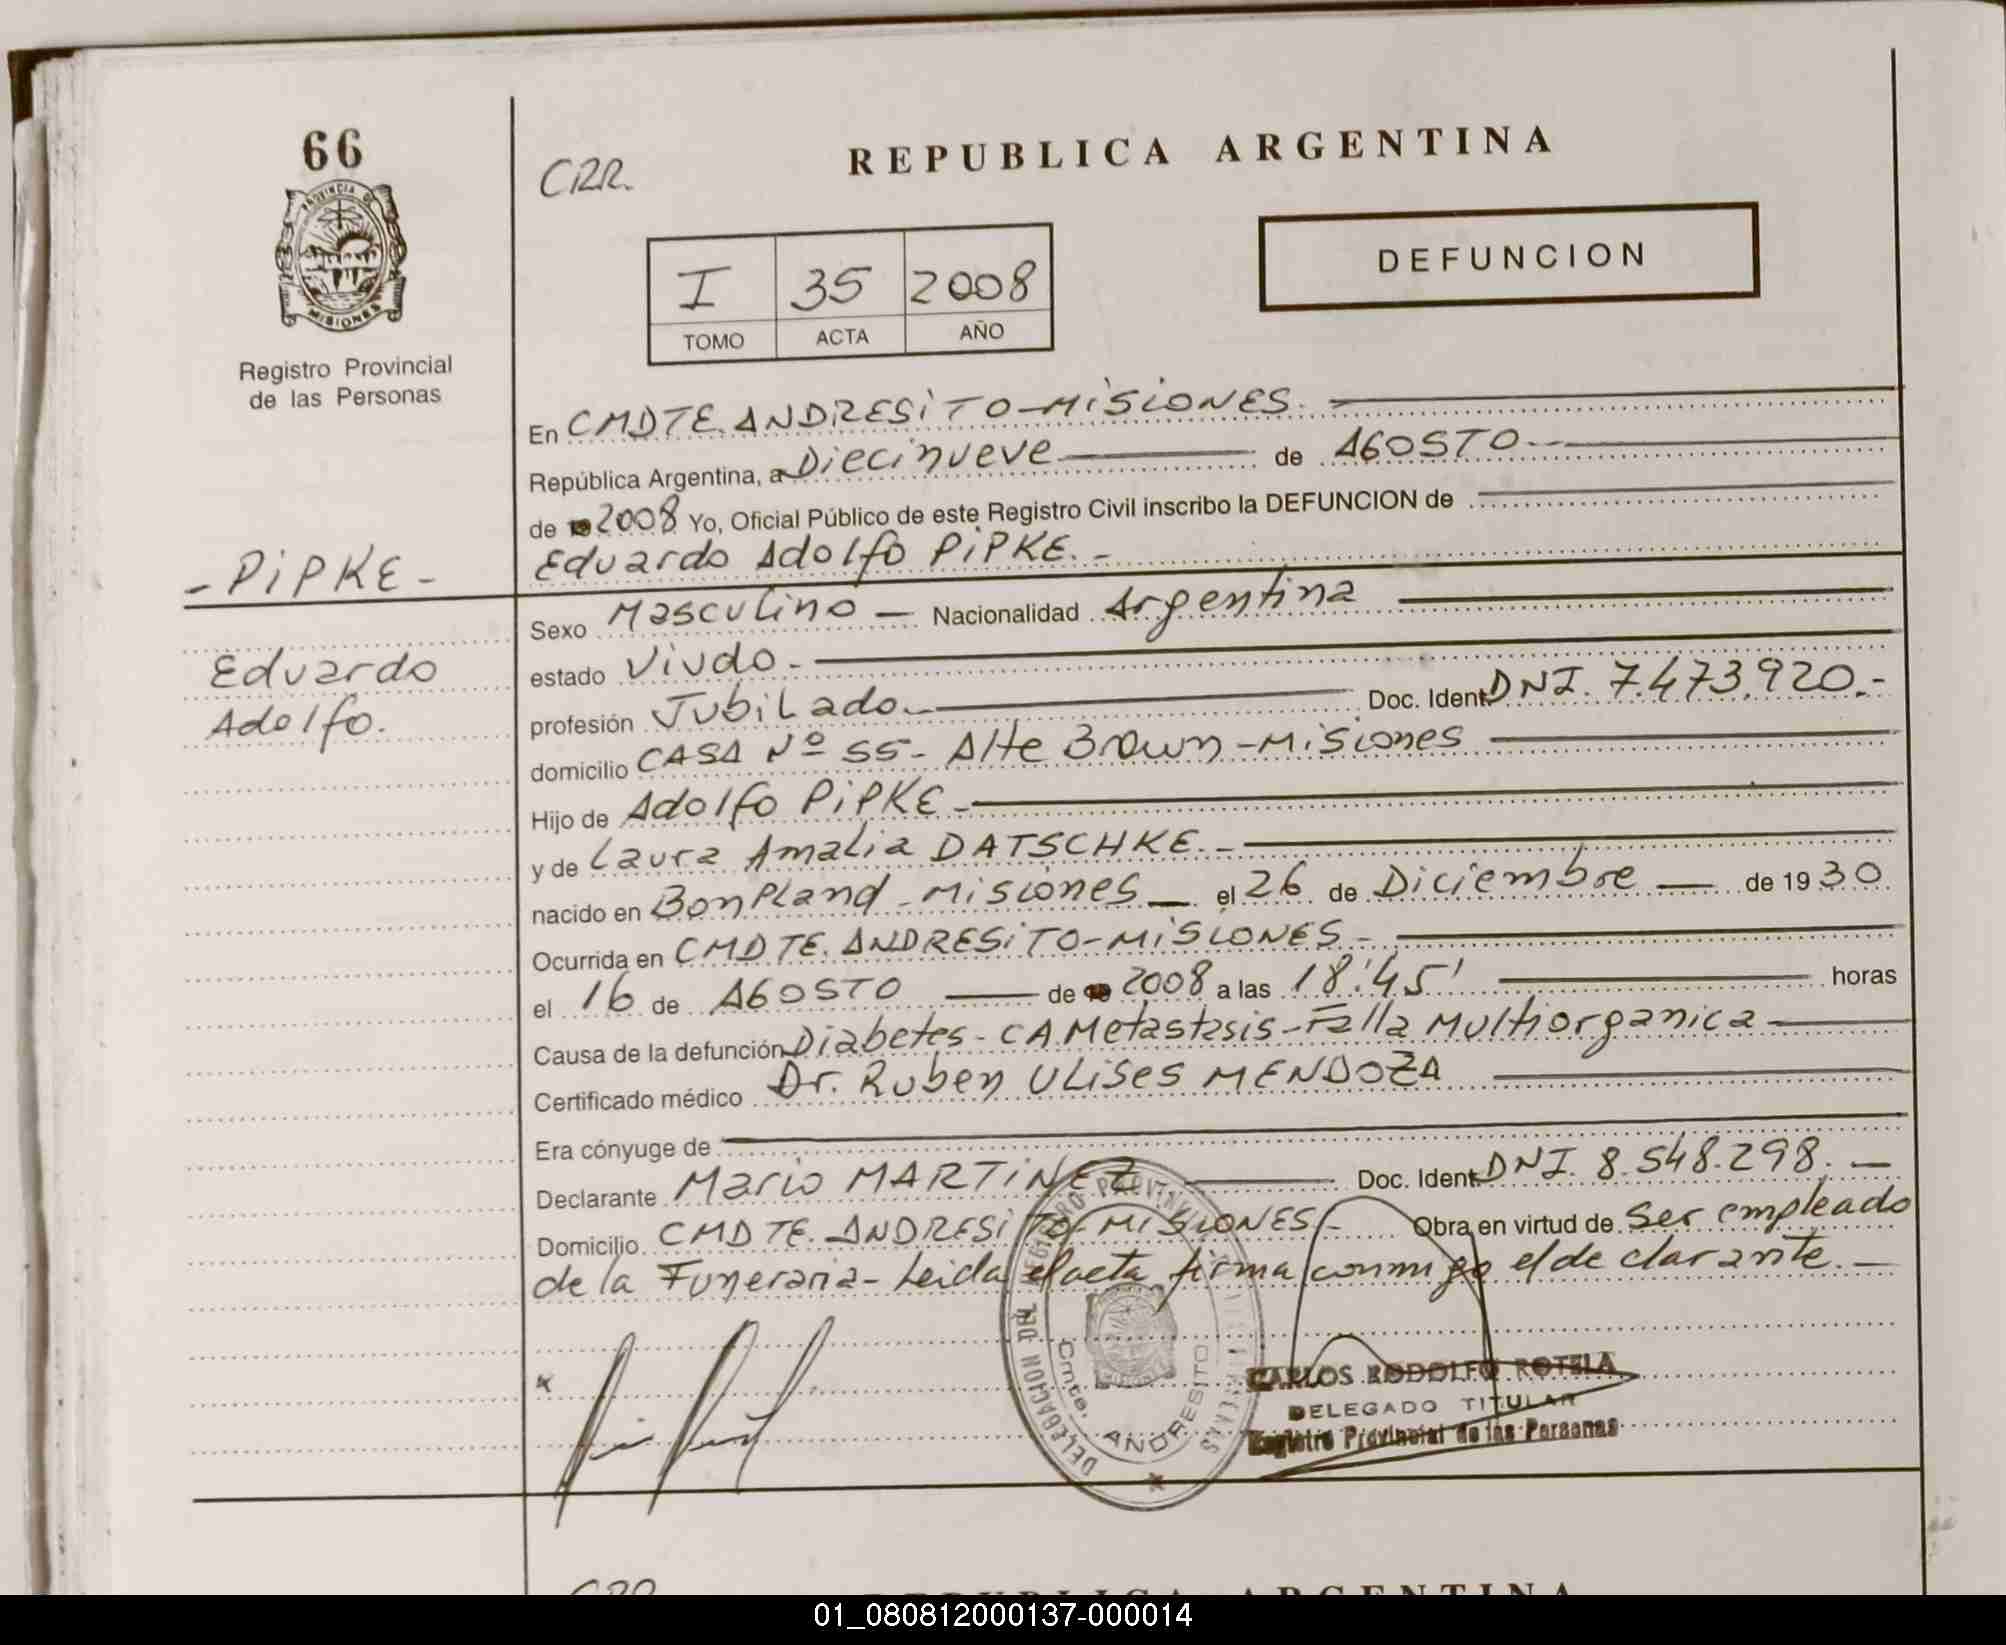 66
PROVINCIA DE
MISIONES
Registro Provincial
de las Personas
CRR.
REPUBLICA ARGENTINA
I 35 2008
TOMO ACTA AÑO
DEFUNCION
En CMDTE. ANDRESITO-MISIONES.
República Argentina, a Diecinueve de AGOSTO
de 2008 Yo, Oficial Público de este Registro Civil inscribo la DEFUNCION de
- PIPKE - Eduardo Adolfo PIPKE. -
Sexo Masculino — Nacionalidad Argentina
Eduardo estado Viudo.
Adolfo. profesión Jubilado. Doc. Ident. DNI. 7.473.920.-
domicilio CASA Nº 55- Alte Brown-Misiones
Hijo de Adolfo PIPKE.
y de Laura Amalia DATSCHKE.
nacido en Bonpland - Misiones — el 26 de Diciembre — de 1930
Ocurrida en CMDTE. ANDRESITO-MISIONES -
el 16 de AGOSTO — de 2008 a las 18:45' horas
Causa de la defunción Diabetes- CA.Metastasis-Falla Multiorganica
Certificado médico Dr. Ruben Ulises MENDOZA
Era cónyuge de
Declarante Mario MARTINEZ Doc. Ident. DNI. 8.548.298. —
Domicilio CMDTE. ANDRESITO-MISIONES.- Obra en virtud de Ser empleado
de la Funeraria- Leida el acta firma conmigo el declarante. —
DELEGACION DEL REGISTRO PROVINCIAL DE LAS PERSONAS
Cmte. ANDRESITO
CARLOS RODOLFO ROTELA
DELEGADO TITULAR
Registro Provincial de las Personas
CRR
REPUBLICA ARGENTINA
01_080812000137-000014